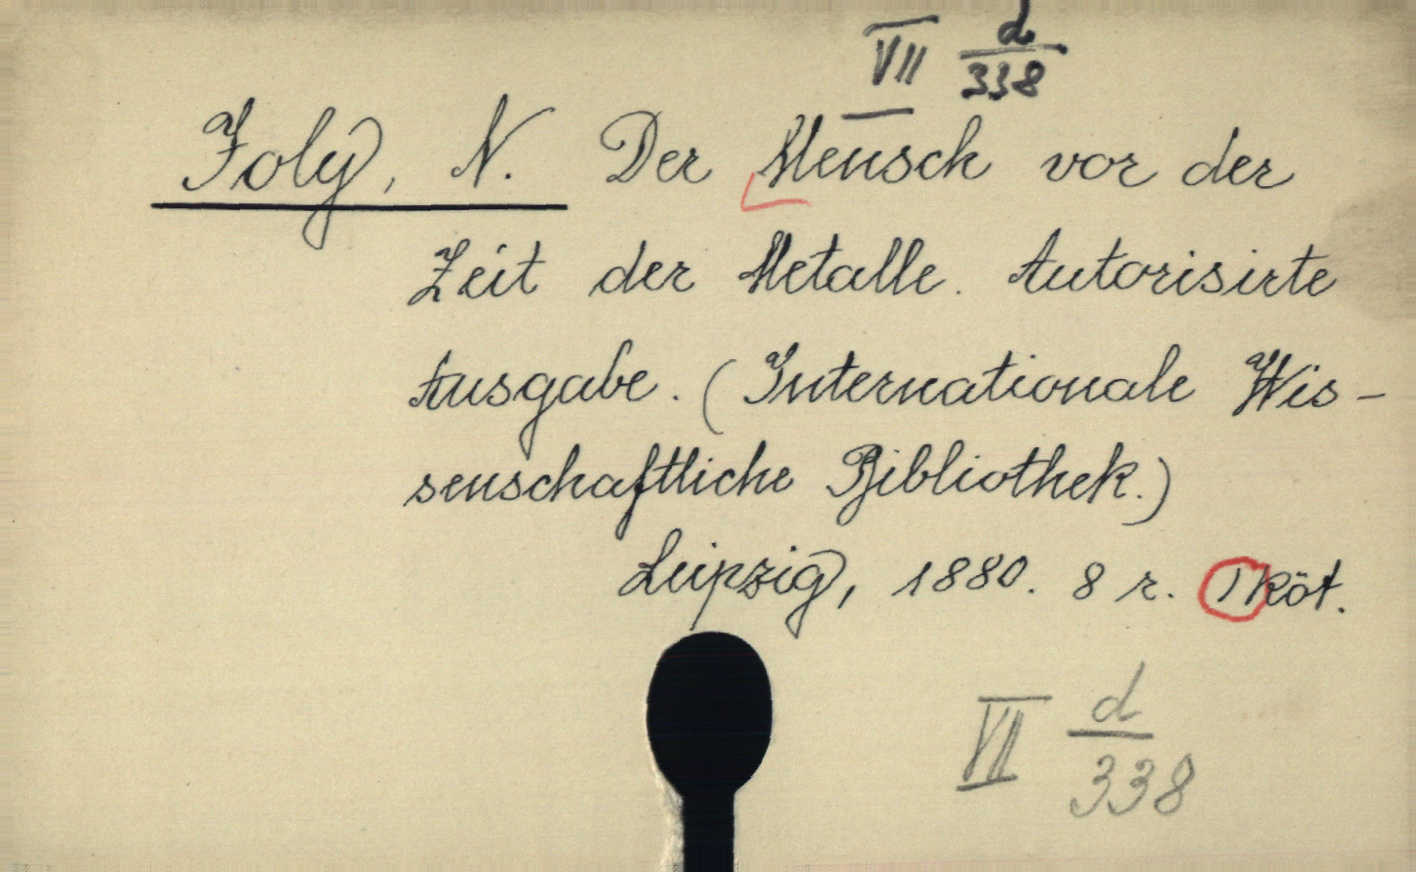 VII d/338
Joly, N. Der Mensch vor der
Zeit der Metalle. Autorisirte
Ausgabe. (Internationale Wis-
senschaftliche Bibliothek.)
Leipzig, 1880. 8 r. 1 köt.
VII d/338